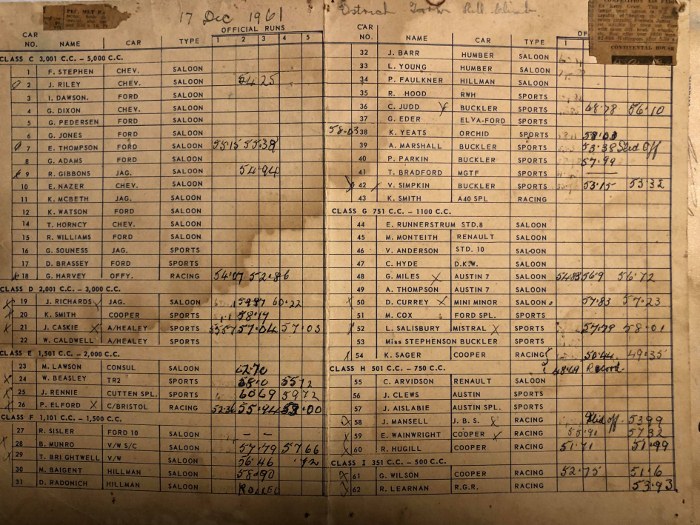 17 Dec 1961
OFFICIAL RUNS
CAR NO. NAME CAR TYPE 1 2 3 4 5
CLASS C 3,001 C.C. - 5,000 C.C.
1 F. STEPHEN CHEV. SALOON
2 J. RILEY CHEV. SALOON 54.25
3 I. DAWSON. FORD SALOON
4 G. DIXON CHEV. SALOON
5 G. PEDERSEN FORD SALOON
6 G. JONES FORD SALOON
7 E. THOMPSON FORD SALOON 55.15 55.38
8 G. ADAMS FORD SALOON
9 R. GIBBONS JAG. SALOON 54.94
10 E. NAZER CHEV. SALOON
11 K. McBETH JAG. SALOON
12 K. WATSON FORD SALOON
14 T. HORNCY CHEV. SALOON
15 R. WILLIAMS FORD SALOON
16 G. SOUNESS JAG. SPORTS
17 D. BRASSEY FORD SPORTS
18 G. HARVEY OFFY. RACING 54.07 52.86
CLASS D 2,001 C.C. - 3,000 C.C.
19 J. RICHARDS X JAG. SALOON 60.22
20 K. SMITH COOPER SPORTS 58.19
21 J. CASKIE X A/HEALEY SPORTS 57.04 57.03
22 W. CALDWELL A/HEALEY SPORTS
CLASS E 1,501 C.C. - 2,000 C.C.
23 M. LAWSON CONSUL SALOON 62.70
24 W. BEASLEY TR2 SPORTS 58.0 55.12
25 J. RENNIE CUTTEN SPL. SPORTS 60.69 59.72
26 P. ELFORD X C/BRISTOL RACING 52.36 55.94 53.00
CLASS F 1,101 C.C. - 1,500 C.C.
27 R. SISLER FORD 10 SALOON
28 B. MUNRO V/W S/C SALOON 57.79 57.66
29 T. BRIGHTWELL V/W SALOON 56.46
30 M. BAIGENT HILLMAN SALOON 58.90
31 D. RADONICH HILLMAN SALOON ROLLED
CAR NO. NAME CAR TYPE
32 J. BARR HUMBER SALOON
33 L. YOUNG HUMBER SALOON
34 P. FAULKNER HILLMAN SALOON
35 R. HOOD RWH SPORTS
36 C. JUDD BUCKLER SPORTS 68.78 56.10
37 G. EDER ELVA-FORD SPORTS
58.03 38 K. YEATS ORCHID SPORTS 58.03
39 A. MARSHALL BUCKLER SPORTS 55.38 Slid Off
40 P. PARKIN BUCKLER SPORTS 57.99
41 T. BRADFORD MGTF SPORTS
42 V. SIMPKIN BUCKLER SPORTS 53.15 53.32
43 K. SMITH A40 SPL RACING
CLASS G 751 C.C. - 1100 C.C.
44 E. RUNNERSTRUM STD.8 SALOON
45 M. MONTEITH RENAULT SALOON
46 V. ANDERSON STD. 10 SALOON
47 C. HYDE D.K.W. SALOON
48 G. MILES X AUSTIN 7 SALOON 56.72
49 A. THOMPSON AUSTIN 7 SALOON
50 D. CURREY X MINI MINOR SALOON 57.83 57.23
51 M. COX FORD SPL. SPORTS
52 L. SALISBURY MISTRAL X SPORTS 57.78 58.01
53 Miss STEPHENSON BUCKLER SPORTS
54 K. SAGER COOPER RACING 50.44 49.35
CLASS H 501 C.C. - 750 C.C. Record
55 C. ARVIDSON RENAULT SALOON
56 J. CLEWS AUSTIN SPORTS
57 J. AISLABIE AUSTIN SPL. SPORTS
58 J. MANSELL J. B. S. X RACING Slid off 53.99
59 E. WAINWRIGHT COOPER X RACING 57.32
60 R. HUGILL COOPER RACING 51.71 51.99
CLASS I 351 C.C. - 500 C.C.
61 G. WILSON COOPER RACING 52.75 51.6
62 R. LEARNAN R.G.R. RACING 53.93